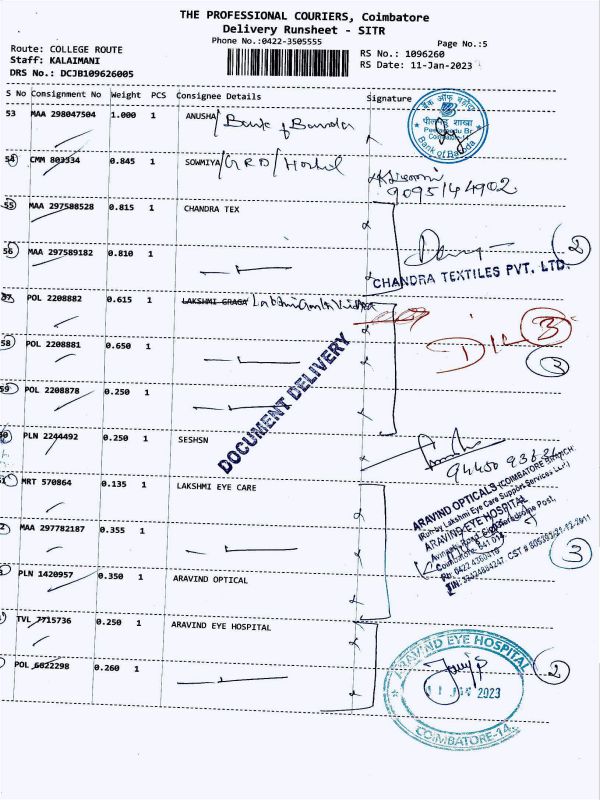 THE PROFESSIONAL COURIERS, Coimbatore
Delivery Runsheet - SITR
Phone No.:0422-3505555
Page No.:5
Route: COLLEGE ROUTE
RS No.: 1096260
Staff: KALAIMANI
RS Date: 11-Jan-2023
DRS No.: DCJB109626005
S No Consignment No Weight PCS Consignee Details Signature
53 MAA 298047504 1.000 1 ANUSHA/ Bank of Baroda
Bank of Baroda
54 CMM 803334 0.845 1 SOWMIYA/GRD/Hostel
9095144902
55 MAA 297588528 0.815 1 CHANDRA TEX
56 MAA 297589182 0.810 1
2
CHANDRA TEXTILES PVT. LTD.
57 POL 2208882 0.615 1 LAKSHMI GRAGA
3
58 POL 2208881 0.650 1
3
DOCUMENT DELIVERY
59 POL 2208878 0.250 1
PLN 2244492 0.250 1 SESHSN
MRT 570864 0.135 1 LAKSHMI EYE CARE
ARAVIND OPTICALS (COIMBATORE BRANCH)
(Run by Lakshmi Eye Care Support Services LLP)
ARAVIND EYE HOSPITAL
MAA 297782187 0.355 1
3
PLN 1420957 0.350 1 ARAVIND OPTICAL
TVL 7715736 0.250 1 ARAVIND EYE HOSPITAL
POL 6822298 0.260 1
ARAVIND EYE HOSPITAL
11 JAN 2023
COIMBATORE-14.
2